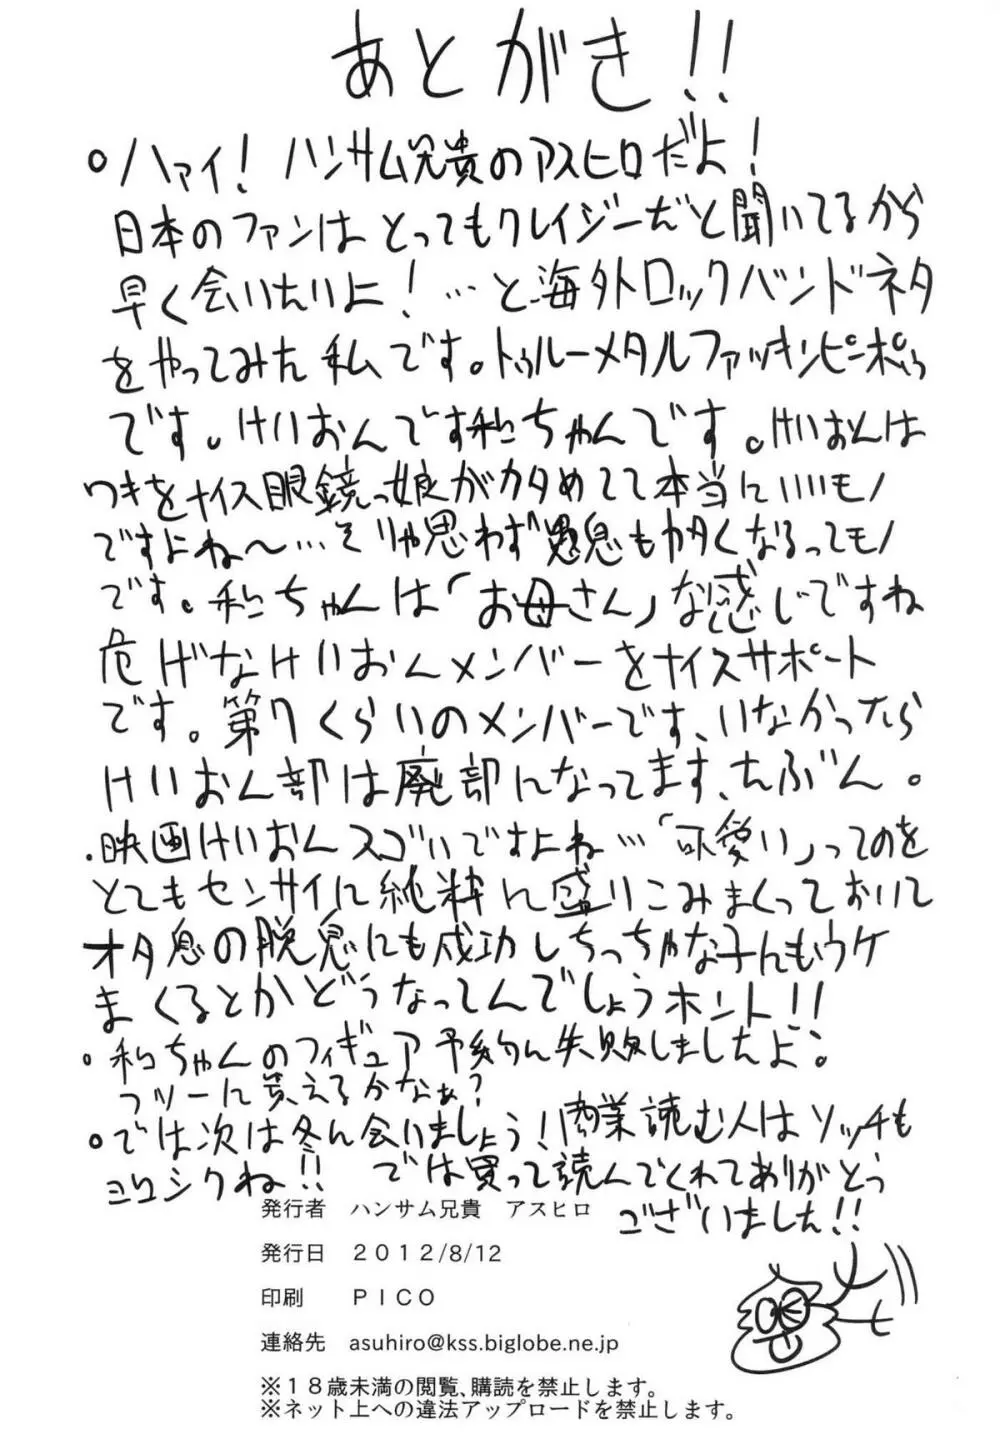 あとがき!!
・ハァイ! ハンサム兄貴のアスヒロだよ!
日本のファンはとってもクレイジーだと聞いてるから
早く会いたいよ!…と海外ロックバンドネタ
をやってみた私です。トゥルーメタルファッキンピーポゥ
です。けいおんです和ちゃんです。けいおんは
ワキをナイス眼鏡っ娘がカタめてて本当にいいモノ
ですよね〜…そりゃ思わず愚息もカタくなるってモノ
です。和ちゃんは「お母さん」な感じですね
危げなけいおんメンバーをナイスサポート
です。第7くらいのメンバーです、いなかったら
けいおん部は廃部になってます、たぶん。
・映画けいおんスゴいですよね…「可愛い」ってのを
とてもセンサイに純粋に盛りこみまくっておいて
オタ息の脱息にも成功しちっちゃな子にもウケ
まくるとかどうなってんでしょうホント!!
・和ちゃんのフィギュア予約に失敗しましたよ。
フツーに買えるかなぁ?
・では次は冬に会いましょう!商業読む人はソッチも
ヨロシクね!! では買って読んでくれてありがとう
ございました!!
発行者 ハンサム兄貴 アスヒロ
発行日 2012/8/12
印刷 PICO
連絡先 asuhiro@kss.biglobe.ne.jp
※18歳未満の閲覧、購読を禁止します。
※ネット上への違法アップロードを禁止します。